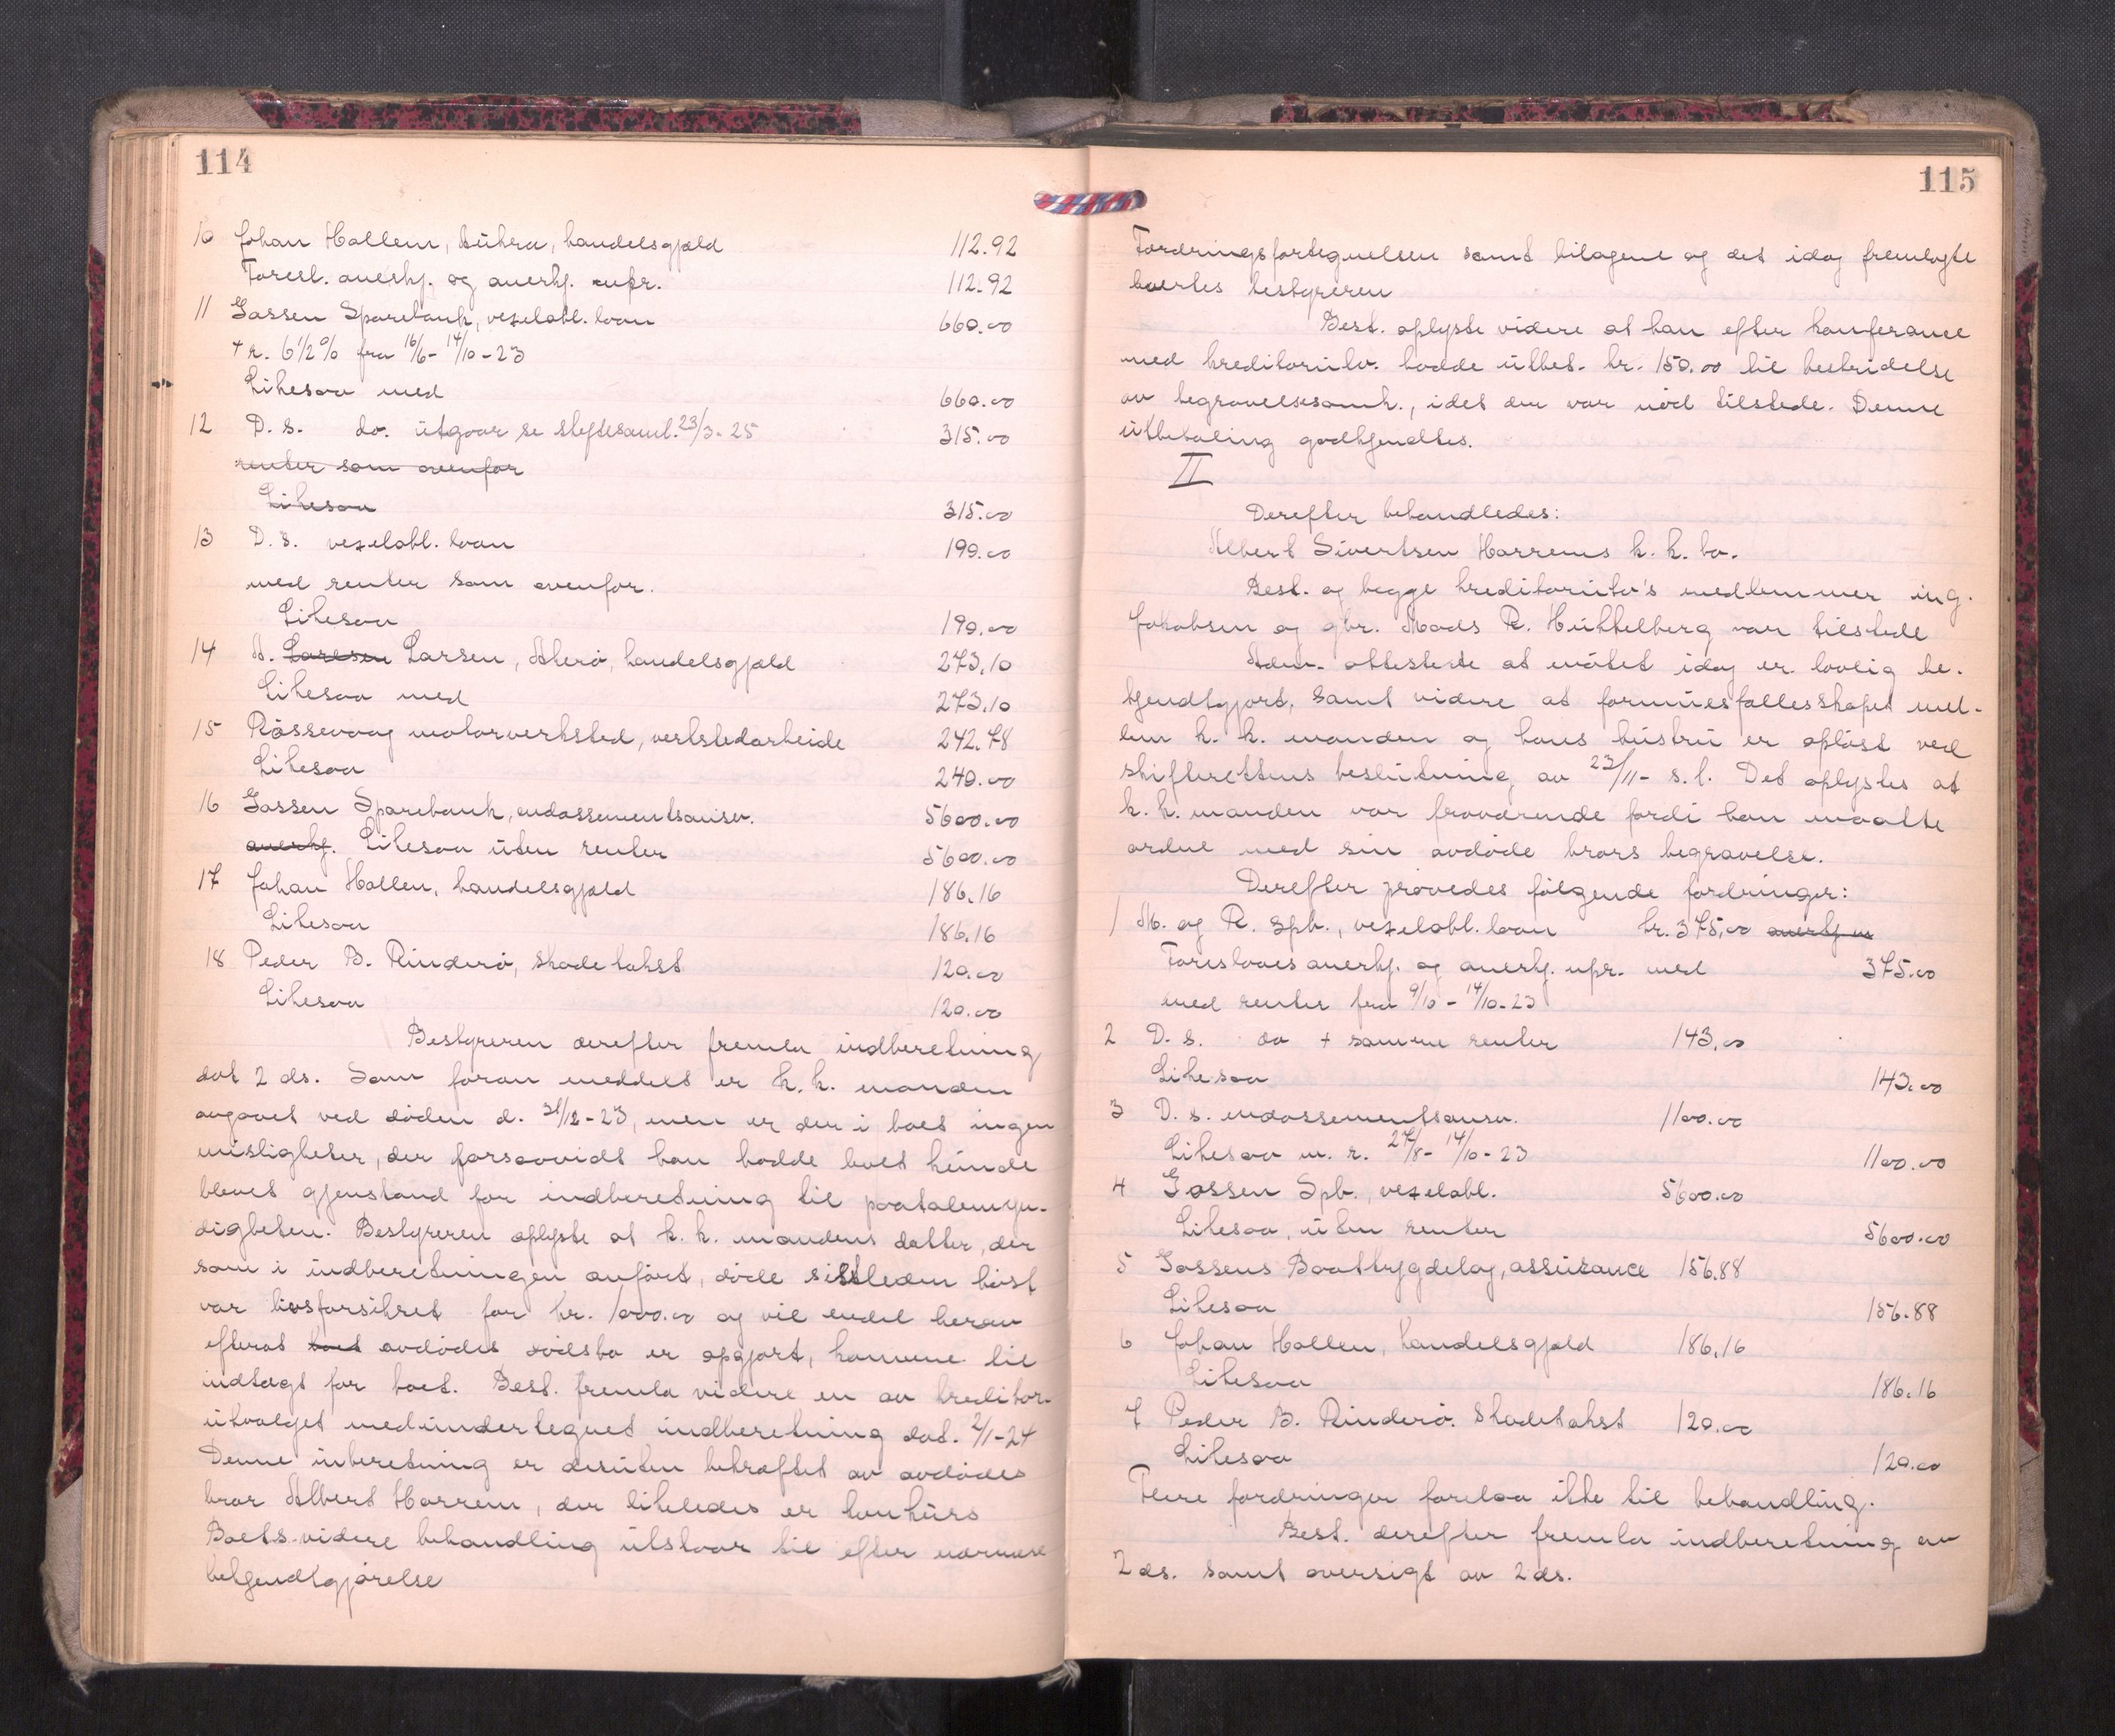 114
10 Johan Hollen, Buhra, handelsgjæld 112.92
Foresl. anerkj. og anerkj. upr. 112.92
11 Gossen Sparebank, vexelobl. loan 660.00
+ r. 6 1/2 % fra 16/6 - 14/10 - 23
Likesaa med 660.00
12 D. s. do. utgaar se skiftesaml. 23/3 - 25 315.00
renter som ovenfor
Likesaa 315.00
13 D. s. vexelobl. loan 199.00
med renter som ovenfor.
Likesaa 199.00
14 A. Larsen Larsen, Akerø, handelsgjæld 273.10
Likesaa med 273.10
15 Røssevaag motorverksted, verkstedarbeide 242.78
Likesaa 240.00
16 Gossen Sparebank, endossementsansv. 5600.00
anerkj. Likesaa uten renter 5600.00
17 Johan Hollen, handelsgjæld 186.16
Likesaa 186.16
18 Peder B. Rinderø, skadetakst 120.00
Likesaa 120.00
Bestyreren derefter fremla indberetning
dat 2 ds. Som foran meddelt er k. k. manden
avgaaet ved døden d. 31/12 - 23, men er der i boet ingen
misligheter, der forsaavidt han hadde levet kunde
blevet gjenstand for indberetning til paatalemyn-
digheten. Bestyreren oplyste at k. k. mandens datter, der
som i indberetningen anført, døde sistleden høst
var livsforsikret for kr. 1000.00 og vil endel herav
efterat boet avdødes dødsbo er opgjort, komme til
indtægt for boet. Best. fremla videre en av kreditor-
utvalget medundertegnet indberetning dat. 2/1 - 24
Denne inberetning er desuten bekræftet av avdødes
bror Albert Horrem, der likeledes er konkurs
Boets videre behandling utstaar til efter nærmere
bekjendtgjørelse
115
Fordringsfortegnelsen samt bilagene og det idag fremlagte
baertes bestyreren
Best. oplyste videre at han efter konferance
med kreditorutv. hadde utbet. kr. 150.00 til bestridelse
av begravelsesomk., idet der var nød tilstede. Denne
utbetaling godkjendtes.
II
Derefter behandledes:
Albert Sivertsen Horrems k. k. bo.
Best. og begge kreditorutv's medlemmer ing.
Jakobsen og gbr. Mads R. Hukkelberg var tilstede
Adm. attesterte at møtet idag er lovlig be-
kjendtgjort, samt videre at formuesfællesskapet mel-
lem k. k. manden og hans hustru er opløst ved
skifterettens beslutning av 23/11 - s. l. Det oplystes at
k. k. manden var fraværende fordi han maatte
ordne med sin avdøde brors begravelse.
Derefter prøvedes følgende fordringer:
1 M. og R. Spb., vexelobl. loan kr. 375.00 anerkj. m
Foreslaaes anerkj. og anerkj. upr. med 375.00
med renter fra 9/10 - 14/10 - 23
2 D. s. do + samme renter 143.00
Likesaa 143.00
3 D. s. endossementsansv. 1100.00
Likesaa m. r. 27/8 - 14/10 - 23 1100.00
4 Gossen Spb., vexelobl. 5600.00
Likesaa, uten renter 5600.00
5 Gossens Baattrygdelag, assurance 156.88
Likesaa 156.88
6 Johan Hollen, handelsgjæld 186.16
Likesaa 186.16
7 Peder B. Rinderø. Skadetakst 120.00
Likesaa 120.00
Flere fordringer forelaa ikke til behandling.
Best. derefter fremla indberetning av
2 ds. samt oversigt av 2 ds.